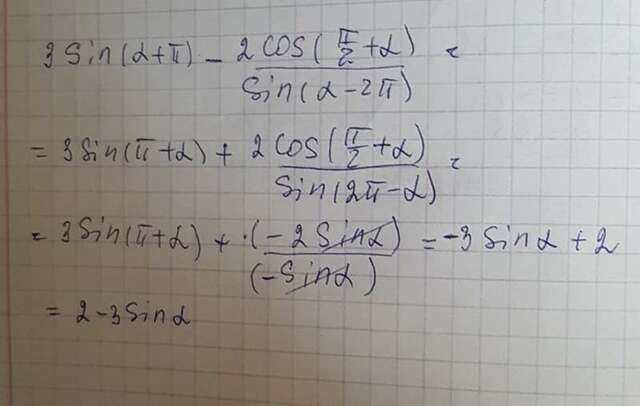 3 Sin(α+π) − 2 cos(π/2 + α) / Sin(α − 2π) =
= 3 Sin(π + α) + 2 cos(π/2 + α) / Sin(2π − α) =
= 3 Sin(π+α) + ·(−2 Sinα) / (−Sinα) = −3 Sinα + 2
= 2 − 3 Sinα